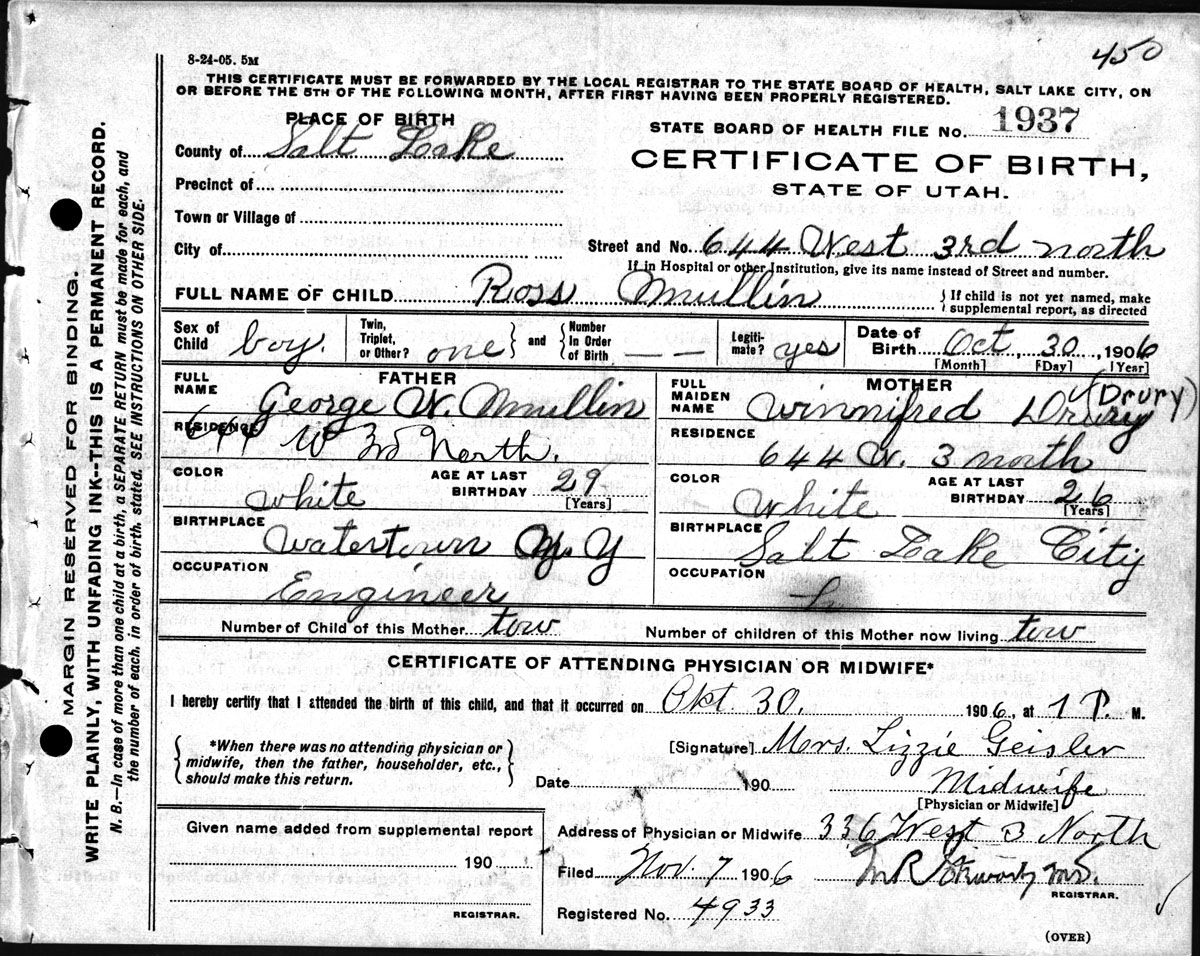 450
8-24-05. 5M
THIS CERTIFICATE MUST BE FORWARDED BY THE LOCAL REGISTRAR TO THE STATE BOARD OF HEALTH, SALT LAKE CITY, ON
OR BEFORE THE 5TH OF THE FOLLOWING MONTH, AFTER FIRST HAVING BEEN PROPERLY REGISTERED.
PLACE OF BIRTH
STATE BOARD OF HEALTH FILE No. 1937
County of Salt Lake
CERTIFICATE OF BIRTH,
STATE OF UTAH.
Precinct of
Town or Village of
City of
Street and No. 644 West 3rd north
If in Hospital or other Institution, give its name instead of Street and number.
FULL NAME OF CHILD Ross Mullin
If child is not yet named, make
supplemental report, as directed
Sex of Child boy. Twin, Triplet, or Other? one and Number In Order of Birth — — Legiti-mate? yes Date of Birth Oct, 30, 1906
[Month] [Day] [Year]
FATHER
FULL NAME George W. Mullin
RESIDENCE 644 W 3rd North.
COLOR white AGE AT LAST BIRTHDAY 29
[Years]
BIRTHPLACE Watertown N. Y
OCCUPATION Engineer
MOTHER
FULL MAIDEN NAME Winnifred Drury (Drury)
RESIDENCE 644 W. 3 north
COLOR White AGE AT LAST BIRTHDAY 26
[Years]
BIRTHPLACE Salt Lake City
OCCUPATION
Number of Child of this Mother tow Number of children of this Mother now living tow
CERTIFICATE OF ATTENDING PHYSICIAN OR MIDWIFE*
I hereby certify that I attended the birth of this child, and that it occurred on Okt. 30. 1906, at 1 P. M.
*When there was no attending physician or
midwife, then the father, householder, etc.,
should make this return.
[Signature] Mrs. Lizzie Geisler
Date 190 Midwife
[Physician or Midwife]
Given name added from supplemental report
190
REGISTRAR.
Address of Physician or Midwife 336 West 3 North
Filed Nov. 7 1906
REGISTRAR.
Registered No. 4933
(OVER)
MARGIN RESERVED FOR BINDING.
WRITE PLAINLY, WITH UNFADING INK--THIS IS A PERMANENT RECORD.
N. B.—In case of more than one child at a birth, a SEPARATE RETURN must be made for each, and
the number of each, in order of birth, stated. SEE INSTRUCTIONS ON OTHER SIDE.